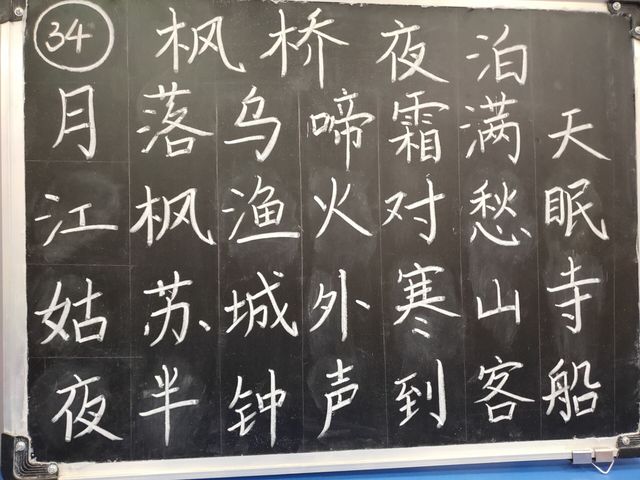 34 枫桥夜泊
月落乌啼霜满天
江枫渔火对愁眠
姑苏城外寒山寺
夜半钟声到客船